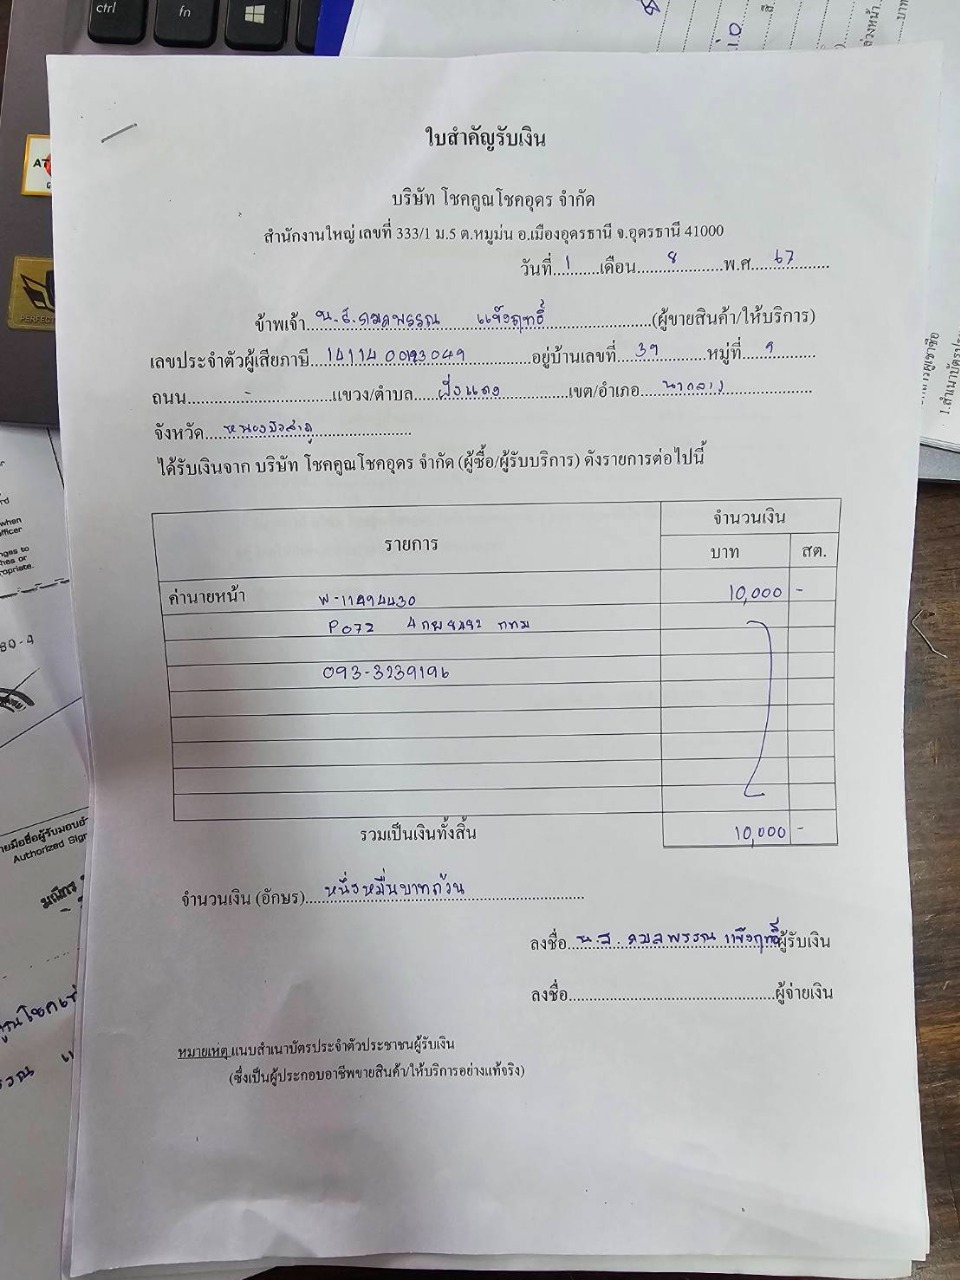 ctrl
fn
ใบสำคัญรับเงิน
บริษัท โชคคูณโชคอุดร จำกัด
สำนักงานใหญ่ เลขที่ 333/1 ม.5 ต.หมูม่น อ.เมืองอุดรธานี จ.อุดรธานี 41000
วันที่ 1 เดือน 8 พ.ศ. 67
ข้าพเจ้า น.ส.กมลพรรณ แข็งฤทธิ์ (ผู้ขายสินค้า/ให้บริการ)
เลขประจำตัวผู้เสียภาษี อยู่บ้านเลขที่ 39 หมู่ที่ 9
ถนน - แขวง/ตำบล ฝั่งแดง เขต/อำเภอ นากลาง
จังหวัด หนองบัวลำภู
ได้รับเงินจาก บริษัท โชคคูณโชคอุดร จำกัด (ผู้ซื้อ/ผู้รับบริการ) ดังรายการต่อไปนี้
รายการ จำนวนเงิน
บาท สต.
ค่านายหน้า 10,000 -
P072 กทม
093-3239196
รวมเป็นเงินทั้งสิ้น 10,000 -
จำนวนเงิน (อักษร) หนึ่งหมื่นบาทถ้วน
ลงชื่อ น.ส. กมลพรรณ แข็งฤทธิ์ ผู้รับเงิน
ลงชื่อ ผู้จ่ายเงิน
หมายเหตุ แนบสำเนาบัตรประจำตัวประชาชนผู้รับเงิน
(ซึ่งเป็นผู้ประกอบอาชีพขายสินค้า/ให้บริการอย่างแท้จริง)